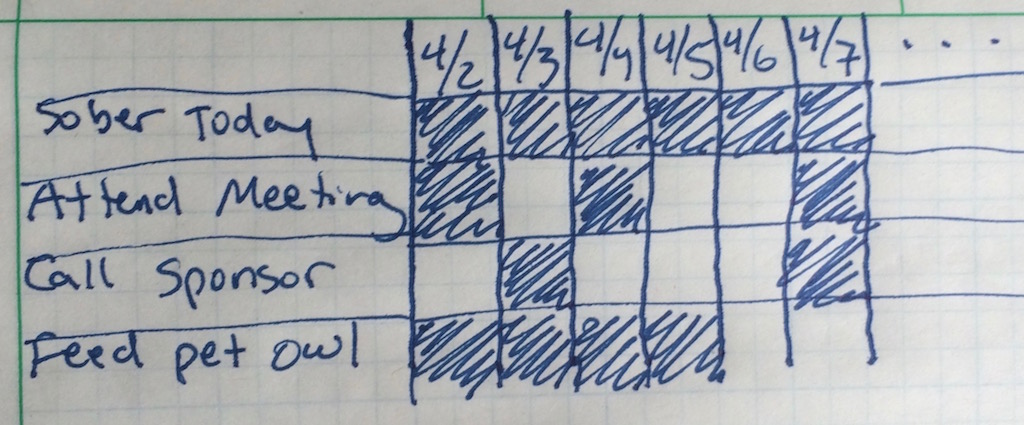 4/2 4/3 4/4 4/5 4/6 4/7 ...
Sober Today
Attend Meeting
Call Sponsor
Feed pet owl